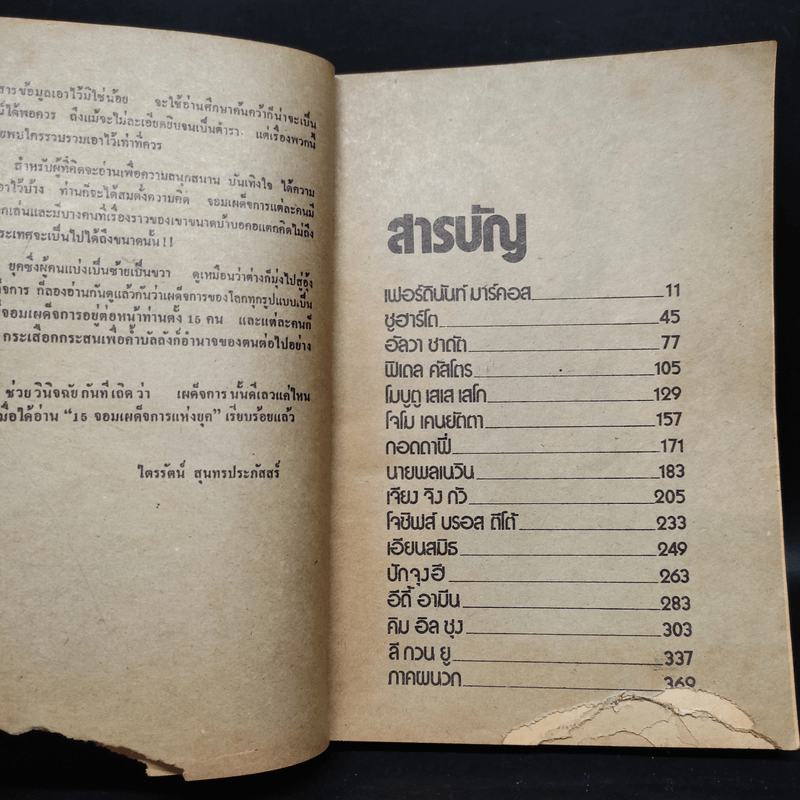 สารข้อมูลเอาไว้มิใช่น้อย จะใช้อ่านศึกษาค้นคว้าก็น่าจะเป็น
ได้พอควร ถึงแม้จะไม่ละเอียดยิบจนเป็นตำรา แต่เรื่องพวกนี้
พบใครรวบรวมเอาไว้เท่าที่ควร
สำหรับผู้ที่คิดจะอ่านเพื่อความสนุกสนาน บันเทิงใจ ได้ความ
เอาไว้บ้าง ท่านก็จะได้สมดั่งความคิด จอมเผด็จการแต่ละคนมี
และมีบางคนที่เรื่องราวของเขาขนาดบ้าบอคอแตกคิดไม่ถึง
ประเทศจะเป็นไปได้ถึงขนาดนั้น!!
ยุคซึ่งผู้คนแบ่งเป็นซ้ายเป็นขวา ดูเหมือนว่าต่างก็มุ่งไปสู่อุ้ง
ก็ลองอ่านกันดูแล้วกันว่าเผด็จการของโลกทุกรูปแบบเป็น
จอมเผด็จการอยู่ต่อหน้าท่านตั้ง 15 คน และแต่ละคนก็
กระเสือกกระสนเพื่อค้ำบัลลังก์อำนาจของตนต่อไปอย่าง
ช่วยวินิจฉัยกันทีเถิดว่า เผด็จการนั้นดีเลวแค่ไหน
เมื่อได้อ่าน “15 จอมเผด็จการแห่งยุค” เรียบร้อยแล้ว
ไตรรัตน์ สุนทรประภัสสร์
สารบัญ
เฟอร์ดินันท์ มาร์คอส 11
ซูฮาร์โต 45
อัลวา ซาดัติ 77
ฟิเดล คัสโตร 105
โมบูตู เสเส เสโก 129
โจโม เคนยัตตา 157
กอดดาฟี่ 171
นายพลเนวิน 183
เจียง จิง กัว 205
โจซิฟส์ บรอส ตีโต้ 233
เอียนสมิธ 249
ปักจุงฮี 263
อีดี้ อามีน 283
คิม อิล ซุง 303
ลี กวน ยู 337
ภาคผนวก 369